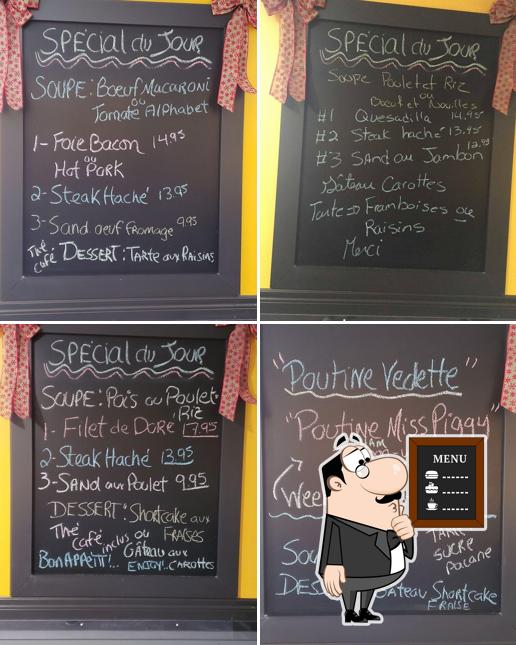 SPÉCIAL du JOUR
SOUPE: Boeuf Macaroni
ou
Tomate Alphabet
1- Foie Bacon 14.95
ou
Hot Pork
2- Steak Haché 13.95
3- Sand oeuf fromage 9.95
Thé
Café DESSERT: Tarte aux Raisins
SPÉCIAL du JOUR
Soupe Poulet et Riz
ou
Boeuf et Nouilles
#1 Quesadilla 14.95
#2 Steak haché 13.95
12.95
#3 Sand au Jambon
Gâteau Carottes
Tarte => Framboises ou
Raisins
Merci
SPÉCIAL du JOUR
SOUPE: Pois ou Poulet
Riz
1- Filet de Doré 17.95
2- Steak Haché 13.95
3- SAND au Poulet 9.95
DESSERT: Shortcake aux
FRAISES
Thé Café inclus ou
Gâteau aux
Bon APPÉTIT!.. ENJOY!.. CAROTTES
"Poutine Vedette"
"Poutine Miss Piggy"
MENU
Wee
Sou
SUCRE
pacane
DESS Gateau Shortcake
FRAISE